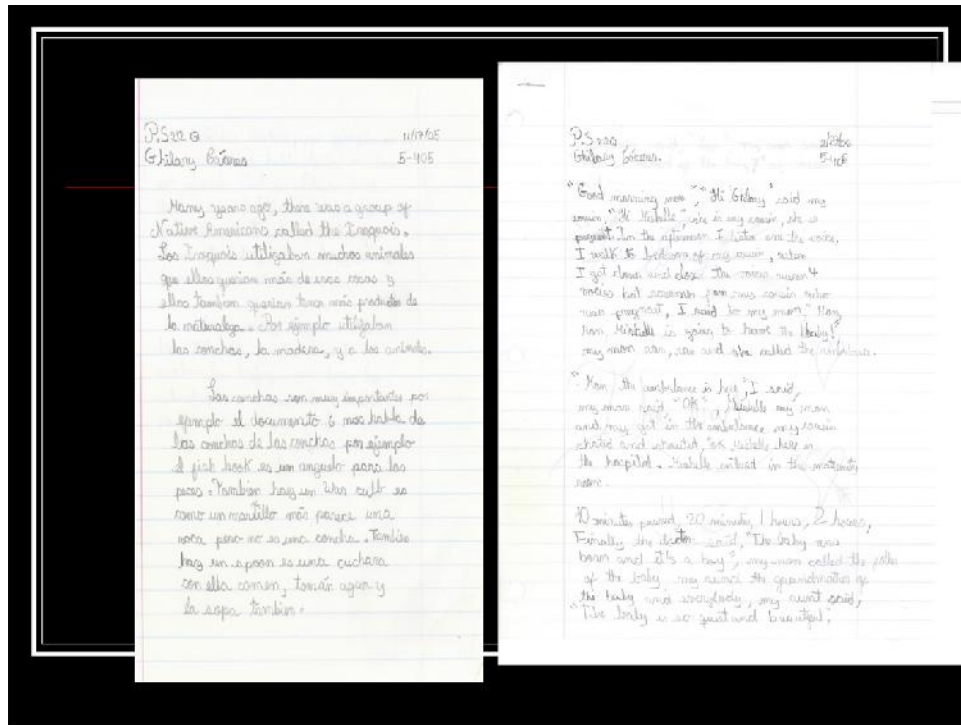 P.S 212 Q 11/17/05
Ghilary Briones 5-405
Many years ago, there was a group of
Native Americans called the Iroquois.
Los Iroquois utilizaban muchos animales
que ellos querian más de esas cosas y
ellos tambien querian tener más productos de
la naturaleza. Por ejemplo utilizaban
las conchas, la madera, y a los animales.
Las conchas son muy importantes por
ejemplo el documento 5 nos habla de
las conchas de las conchas por ejemplo
el fish hook es un anzuelo para los
peces. Tambien hay un War club es
como un martillo más parece una
roca pero no es una concha. Tambien
hay un spoon es una cuchara
con ella comen, toman agua y
la sopa tambien.
P.S 212Q
Ghilary Briones. 5-405
"Good morning mom", "Hi Ghilary" said my
cousin, "Hi Mishelle" is my cousin, she is
In the afternoon I the voice,
I walk to bedroom of my cousin, when
I got close and close the voices
voices but screams from my cousin who
was pregnat, I said to my mom," Mom,
Mom Mishelle is going to have the baby!"
my mom ran, ran and she called the ambulance.
"Mom, the ambulance is here," I said,
my mom said "OK", Mishelle my mom
and my get in the ambulance my cousin
and shouted, "ok Mishelle here in
the hospital. Mishelle in the maternity
room.
10 minutes passed, 20 minutes, 1 hours, 2 hours,
Finally the doctor said, "The baby was
born and it's a boy", my mom called the
of the baby, my aunt the grandmother of
the baby and everybody, my aunt said,
"The baby is so quiet and beautiful",